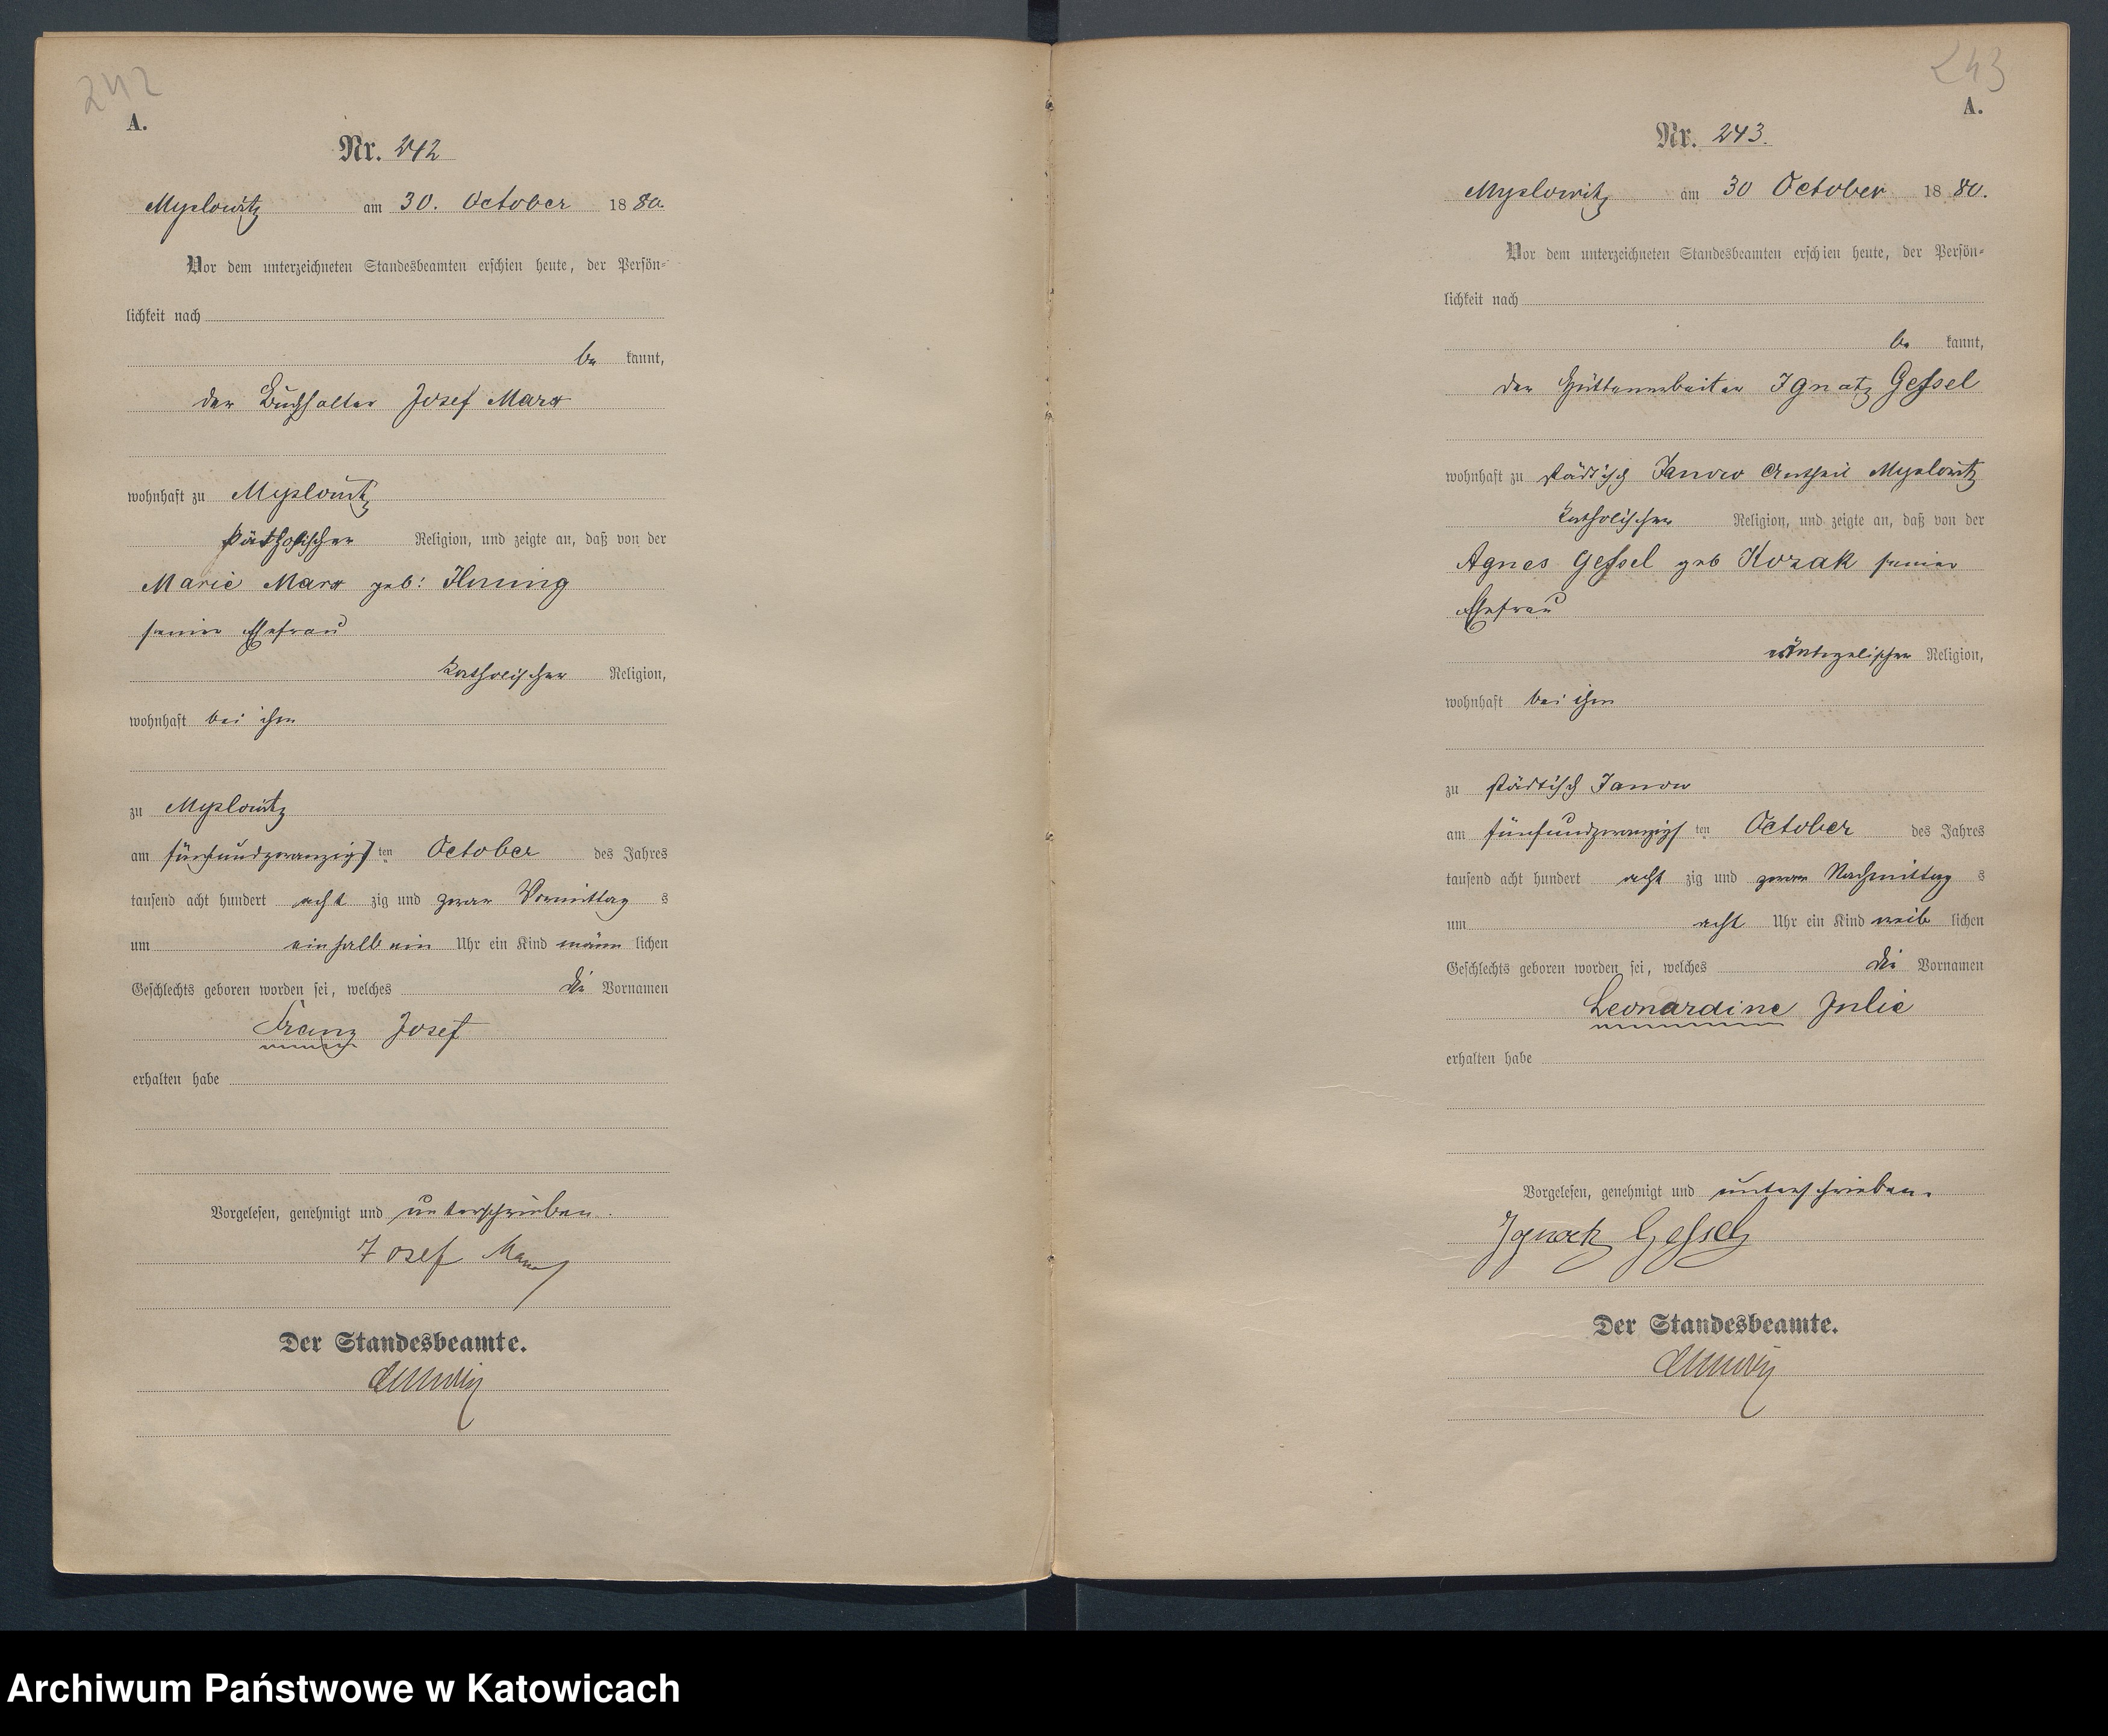 242
A.
Nr. 242
Myslowitz am 30. October 1880.
Vor dem unterzeichneten Standesbeamten erschien heute, der Persön-
lichkeit nach
be kannt,
der Buchhalter Josef Marx
wohnhaft zu Myslowitz
katholischer Religion, und zeigte an, daß von der
Marie Marx geb:
seiner Ehefrau
katholischer Religion,
wohnhaft bei ihm
zu Myslowitz
am fünfundzwanzigs ten October des Jahres
tausend acht hundert acht zig und zwar Vormittag s
um einhalb ein Uhr ein Kind männ lichen
Geschlechts geboren worden sei, welches die Vornamen
Franz Josef
erhalten habe
Vorgelesen, genehmigt und unterschrieben.
Josef Marx
Der Standesbeamte.
243
A.
Nr. 243.
Myslowitz am 30 October 1880.
Vor dem unterzeichneten Standesbeamten erschien heute, der Persön-
lichkeit nach
be kannt,
der Hüttenarbeiter Ignatz Gessel
wohnhaft zu städtisch Janow Antheil Myslowitz
katholischer Religion, und zeigte an, daß von der
Agnes Gessel geb Kozak seiner
Ehefrau
Religion,
wohnhaft bei ihm
zu städtisch Janow
am fünfundzwanzigs ten October des Jahres
tausend acht hundert acht zig und zwar Nachmittag s
um acht Uhr ein Kind weib lichen
Geschlechts geboren worden sei, welches die Vornamen
Leonardine Julie
erhalten habe
Vorgelesen, genehmigt und unterschrieben.
Ignatz Gessel
Der Standesbeamte.
Archiwum Państwowe w Katowicach